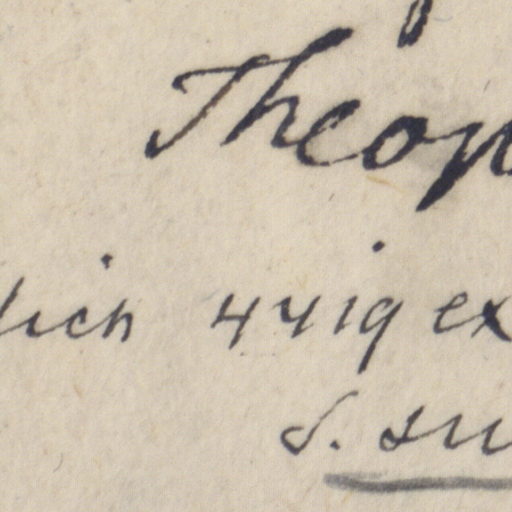 Theop
lich 4419 ex
S.